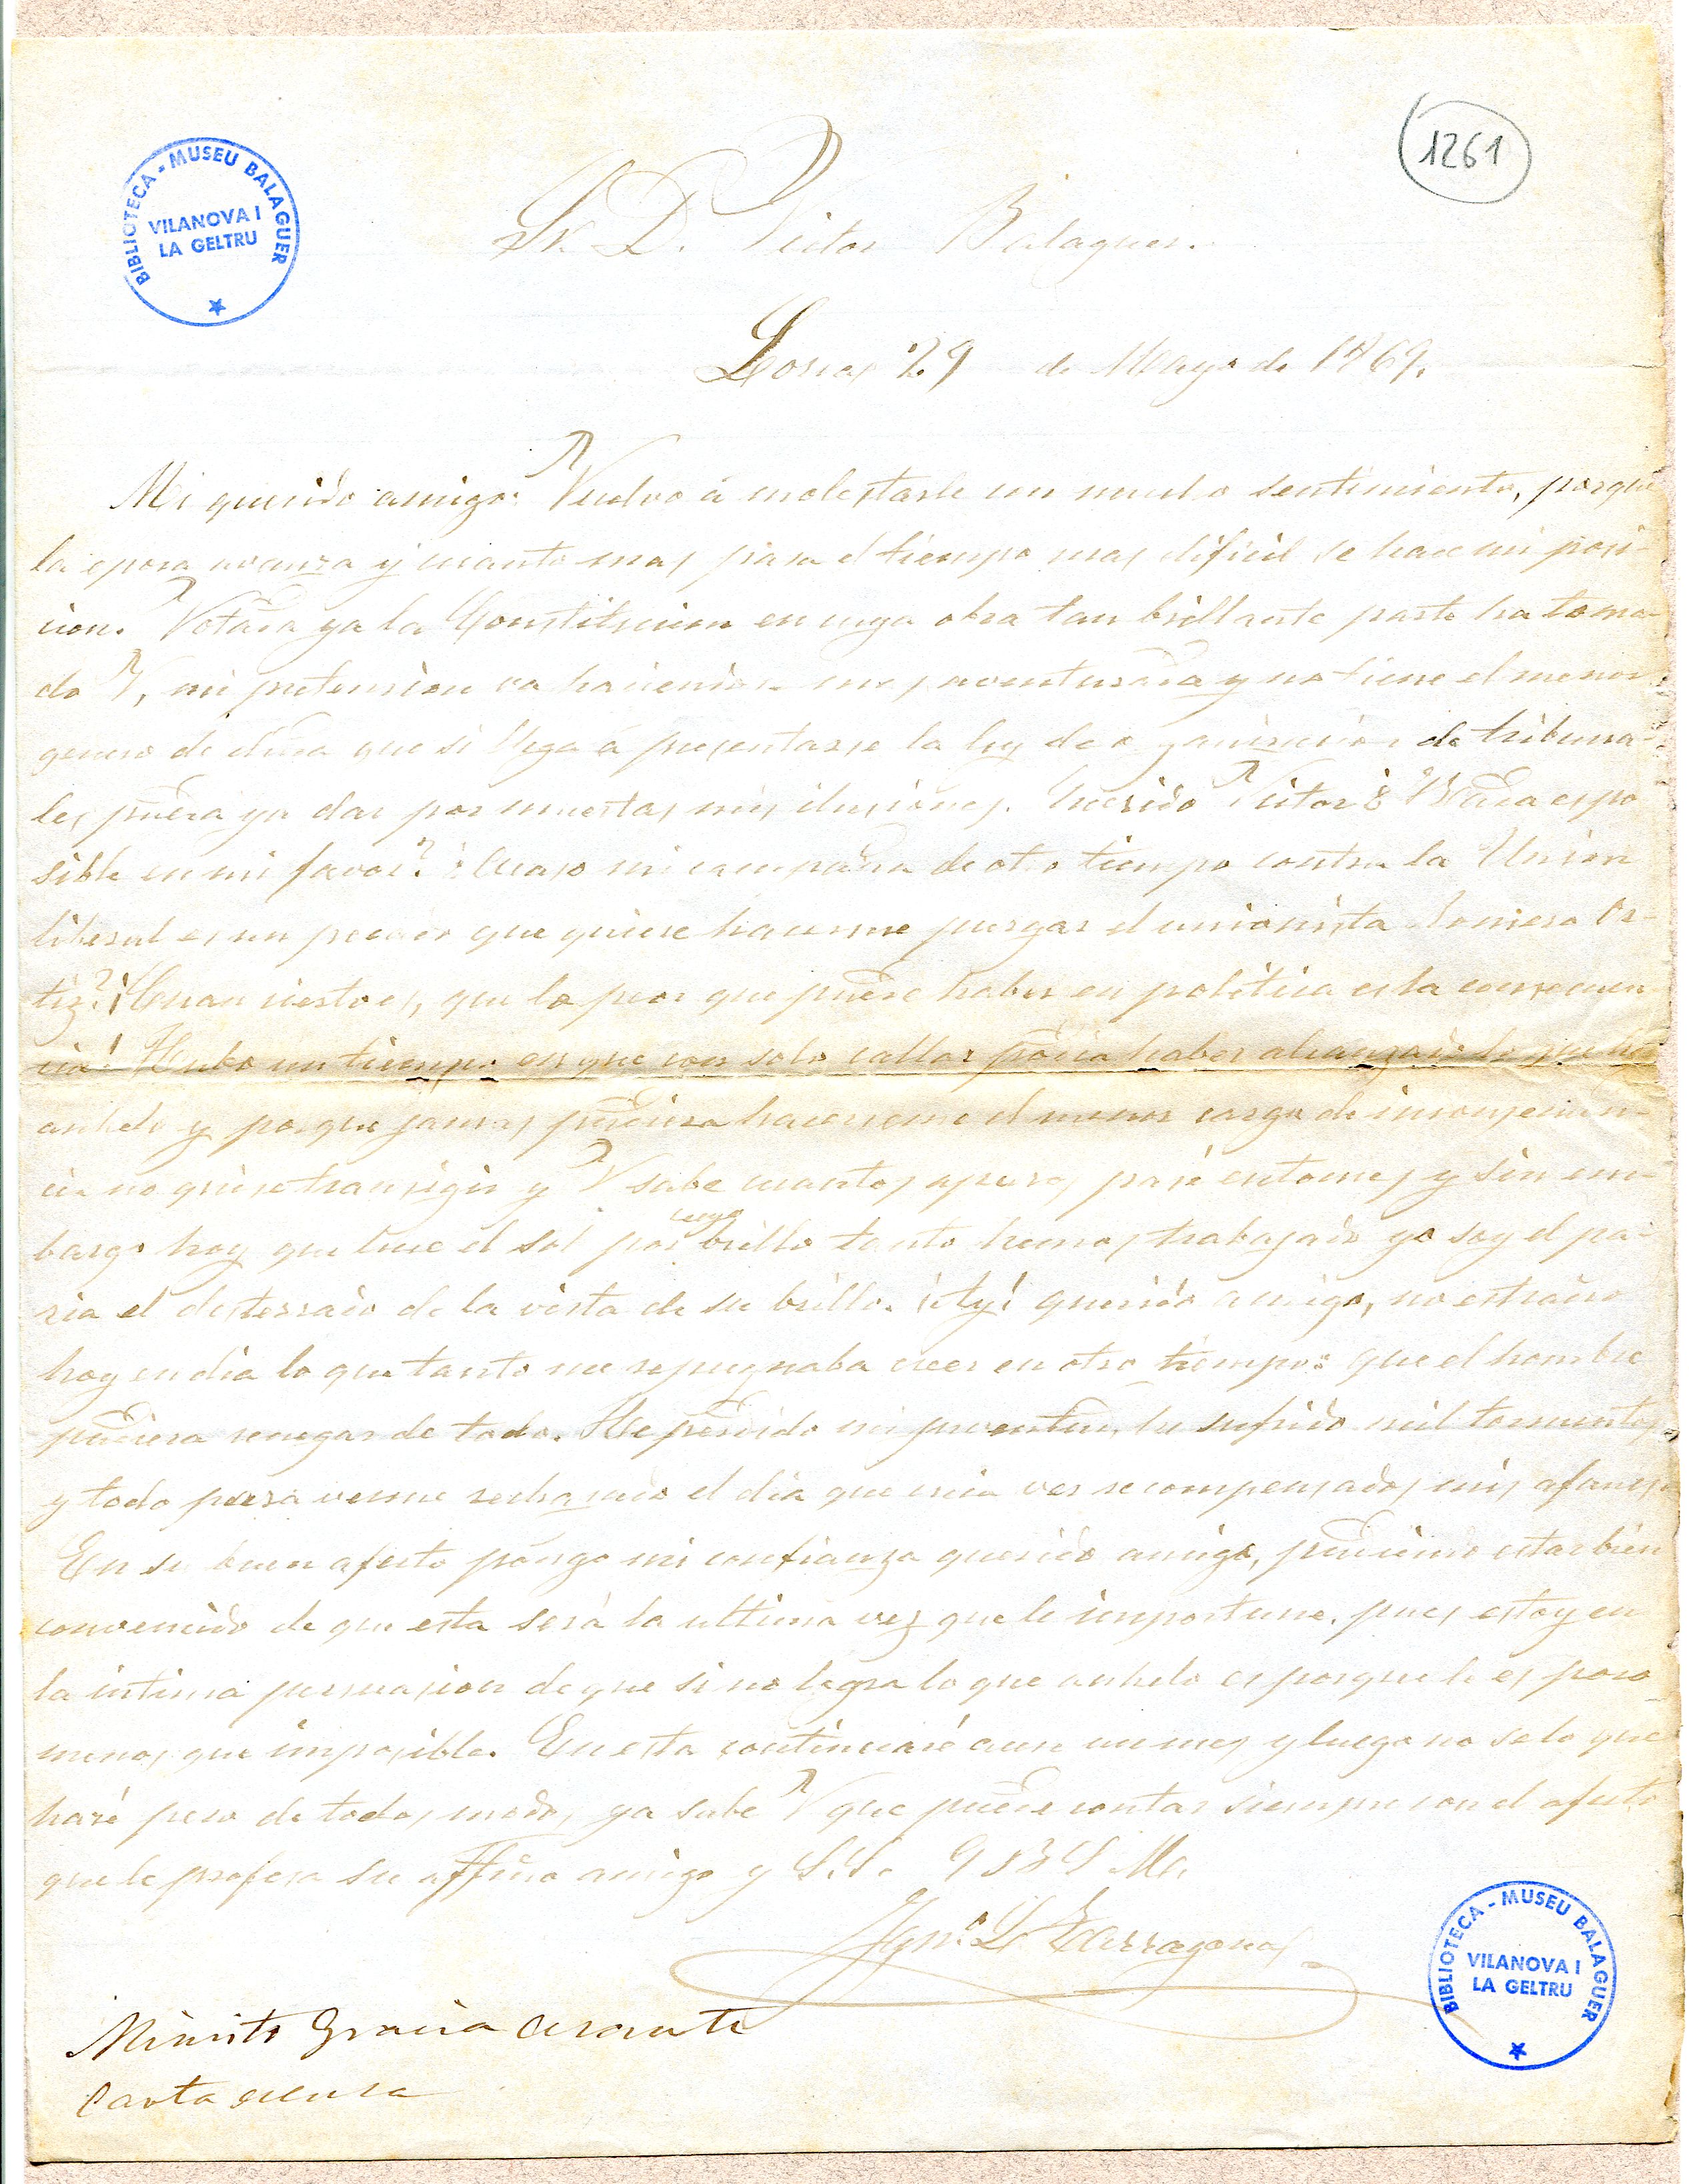 1261
BIBLIOTECA - MUSEU BALAGUER
VILANOVA I
LA GELTRU
Sr. D. Victor Balaguer.
Lorca 29 de Mayo de 1869.
Mi querido amigo: Vuelvo á molestarle con mucho sentimiento, porque
la epoca avanza y cuanto mas pasa el tiempo mas dificil se hace mi posi-
cion. Votada ya la Constitucion en cuya obra tan brillante parte ha toma-
do V, mi pretension va haciendose mas aventurada y no tiene el menor
genero de duda que si llega á presentarse la ley de organizacion de tribuna-
les, puedo ya dar por muertas mis ilusiones. Querido Victor ¿Nada es po
sible en mi favor? ¿Acaso mi campaña de otro tiempo contra la Union
liberal es un pecado que quiere hacerme purgar el unionista Romero Or-
tiz? ¡Cuan cierto es, que lo peor que puede haber en politica es la consecuen
cia! Hubo un tiempo en que con solo callar podia haber alcanzado lo que hoy
anhelo y porque jamas pudiera hacerseme el menor cargo de inconsecuen-
cia no quise transigir y V sabe cuantos apuros pasé entonces y sin em-
bargo hoy que luce el sol por cuyo brillo tanto hemos trabajado yo soy el pa-
ria el desterrado de la vista de su brillo. ¡Ay! querido amigo, no estraño
hoy en dia lo que tanto me repugnaba creer en otro tiempo: que el hombre
pudiera renegar de todo. He perdido mi juventud, he sufrido mil tormentos,
y todo para verme rechazado el dia que creia ver recompensados mis afanes.
En su buen afecto pongo mi confianza querido amigo, pudiendo estar bien
convencido de que esta será la ultima vez que le importune, pues estoy en
la intima persuasion de que si no logra lo que anhelo es porque le es poco
menos que imposible. En esta continuaré aun un mes y luego no se lo que
haré pero de todos modos ya sabe V que puede contar siempre con el afecto
que le profesa su affmo amigo y S.S. Q S B S M.
Ygno. L. Tarragona
Ministo Gracia
Carta
BIBLIOTECA - MUSEU BALAGUER
VILANOVA I
LA GELTRU